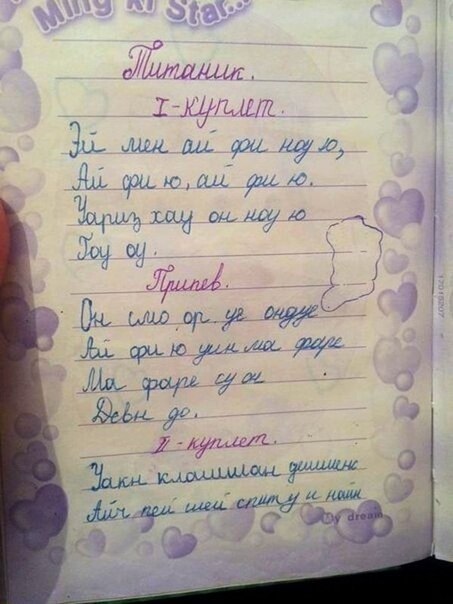 Ming ki Star...
Титаник.
I-куплет.
Эй мен ай фи ноу ю,
Ай фи ю, ай фи ю.
Уариз хау он ноу ю
Гоу оу.
Припев.
Он смо ор уе ондуе
Ай фи ю уин ма фаре
Ма фаре су он
Дєвн до.
II-куплет.
Уакн клашшан дишшенс
Айч пей шей спиту и найн
My dream
17018207